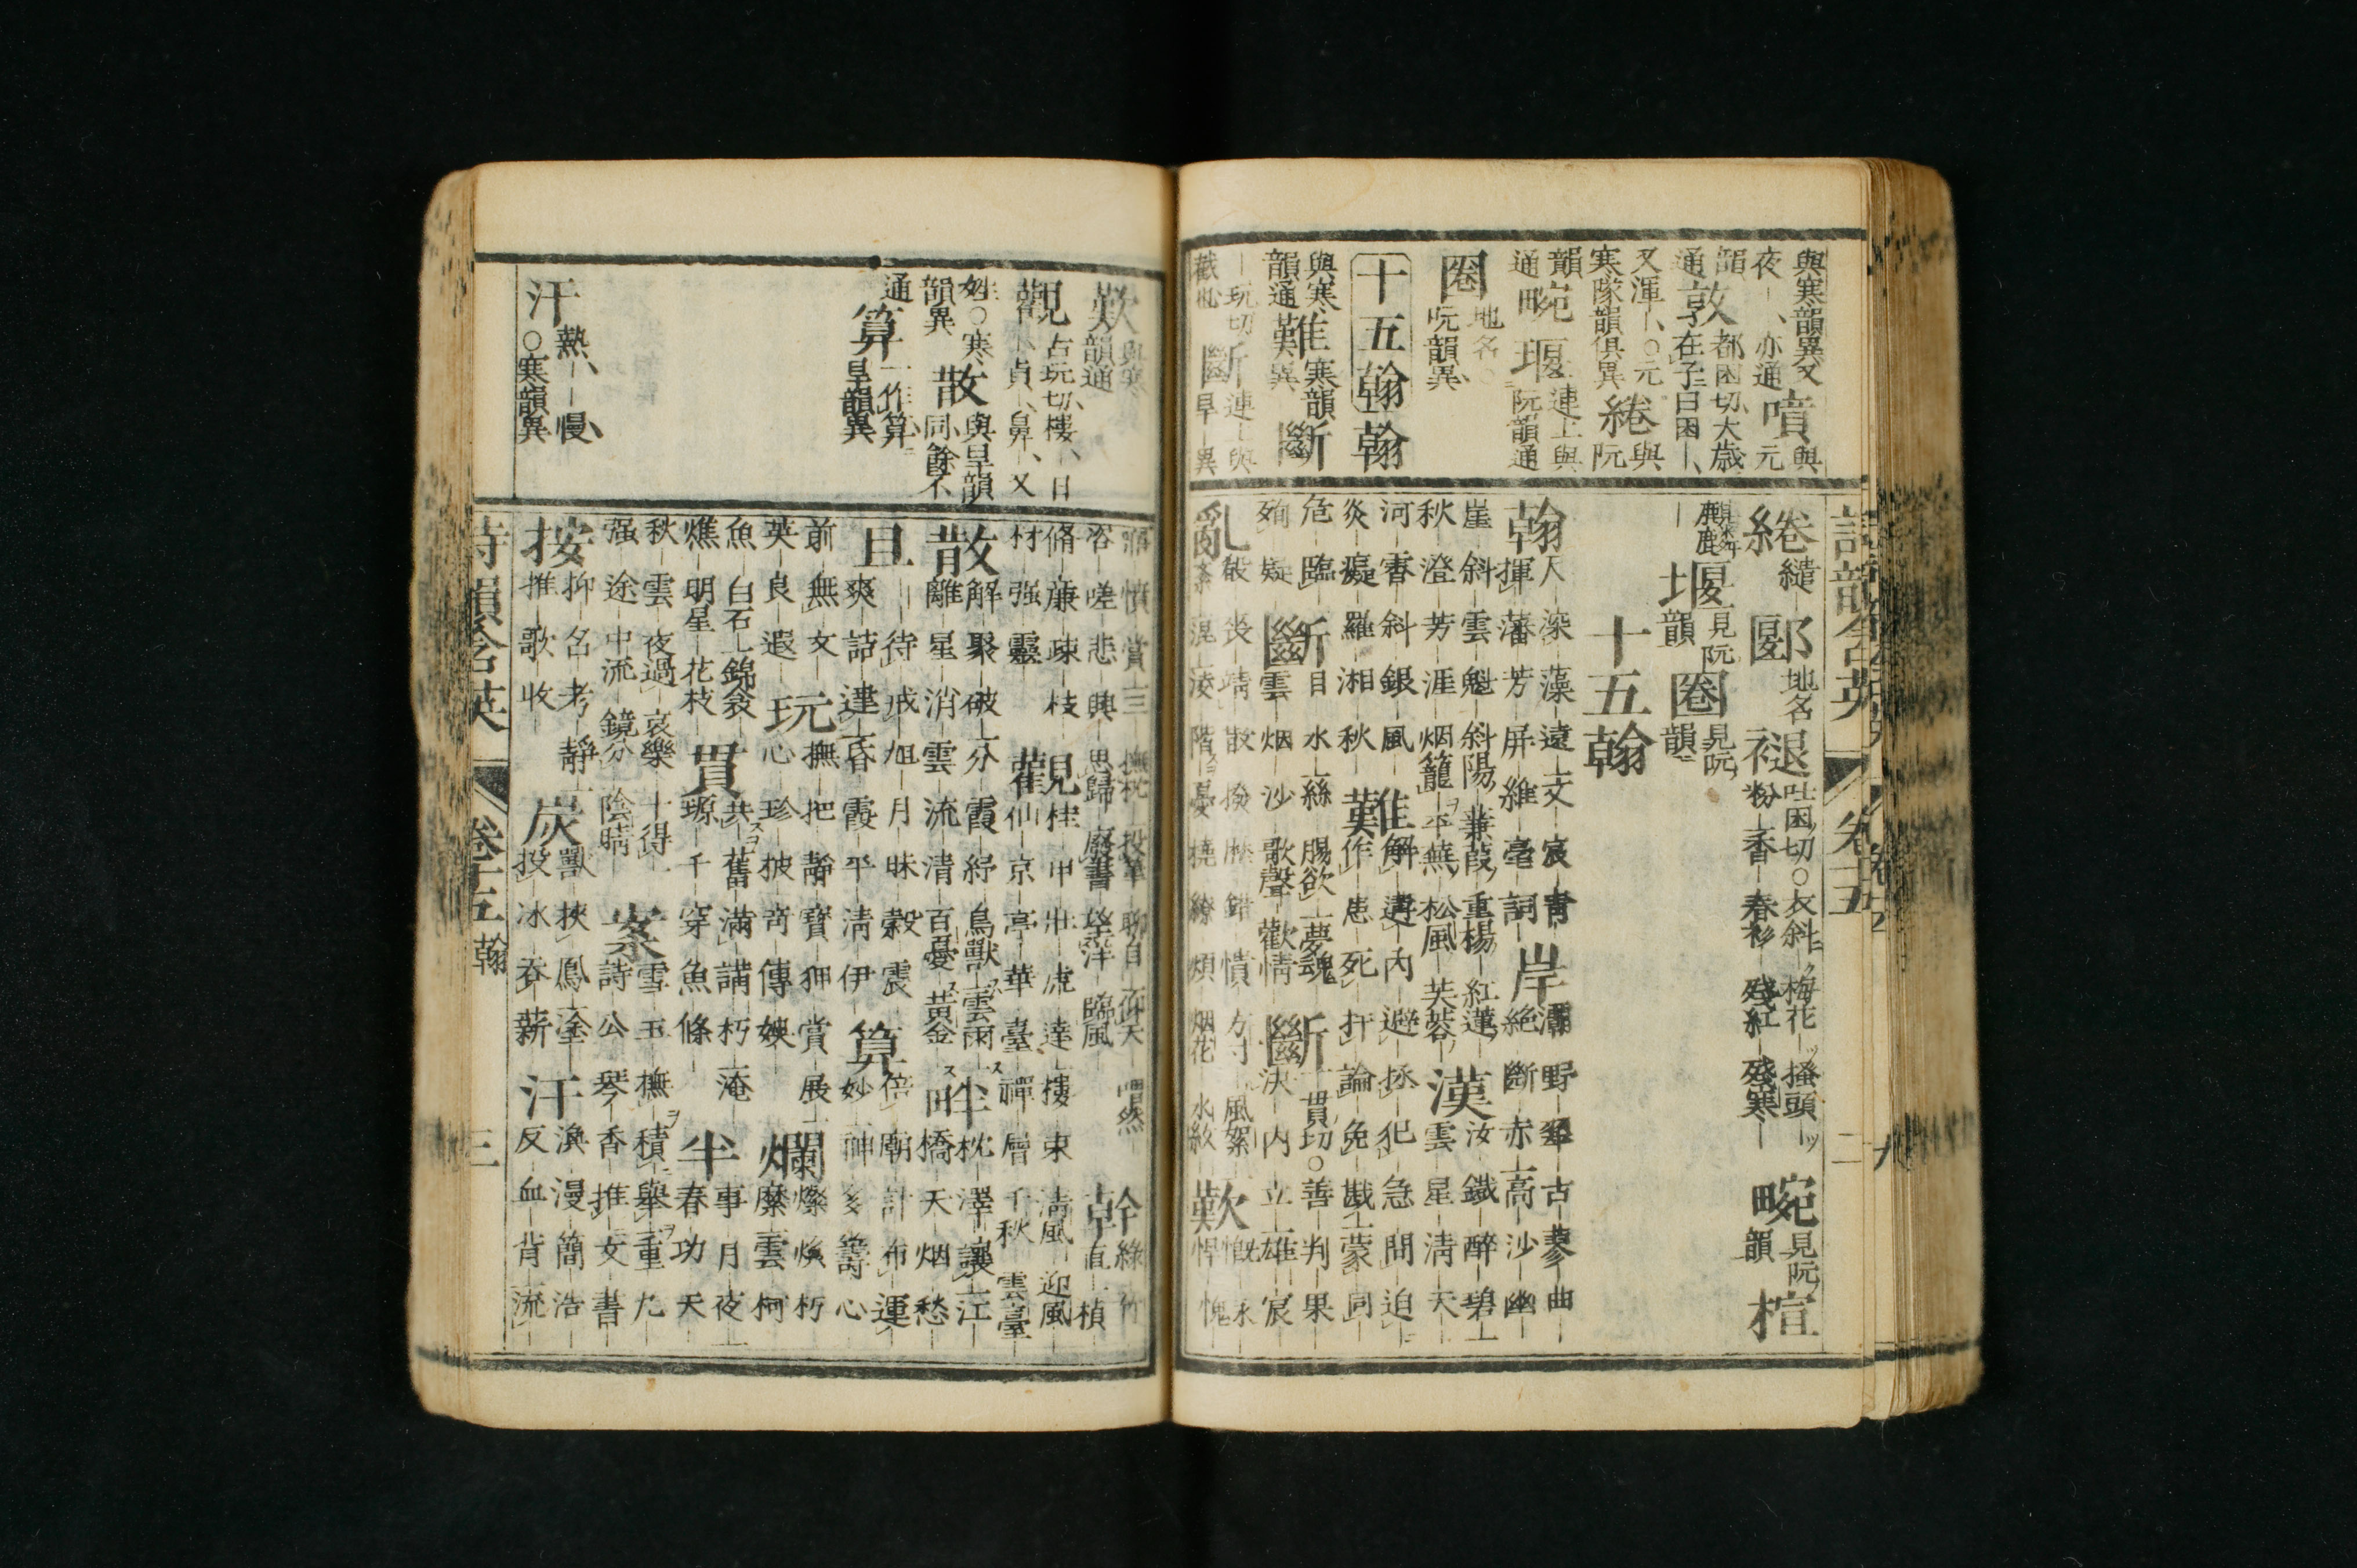 與寒韻異又
夜｜、亦通噴與元
韻、都困切、大歳
通敦在子曰困｜、
又渾｜、○元
寒隊韻俱異綣與阮
韻畹堰連上與
通 阮韻通
圈地名
阮韻異
十五翰翰
與寒難寒韻斷
韻通異
｜玩切斷連上與
旱｜異
詩韻含英 卷十五
綣繾｜郾地名褪吐困切○衣斜｜梅花｜搔頭｜
粉｜香｜春衫｜殘紅｜殘寒｜畹見阮韻楦
麒麟｜堰見阮韻圈見阮韻
十五翰
翰人｜深｜藻｜遠｜文｜宸｜青｜
揮｜藩｜芳｜屏｜維｜毫｜詞｜岸灞｜野｜翠｜古｜蓼｜曲｜
絕｜斷｜赤｜高｜沙｜幽｜
崖｜斜｜雲｜魁｜斜陽｜蒹葭｜重楊｜紅蓮｜
秋｜澄｜芳｜涯｜烟籠｜平蕪｜松風｜芙蓉｜漢汝｜鐵｜醉｜碧｜
雲｜星｜清｜天｜
河｜霄｜斜｜銀｜風｜難解｜遘｜內｜避｜拯｜犯｜急｜問｜迫｜
炎｜癡｜羅｜湘｜秋｜作｜患｜死｜扞｜論｜免｜戡｜蒙｜同｜
危｜臨｜斷目｜水｜絲｜腸欲｜夢魂｜斷貫切○善｜判｜果｜
殉｜疑｜雲｜烟｜沙｜歌聲｜歡情｜決｜內｜立｜雄｜宸｜
亂破｜喪｜靖｜散｜撥｜歷｜錯｜憤｜方寸｜風絮｜歎慨｜永｜
紊｜混｜凌｜階｜憂｜撓｜繚｜煩｜烟花｜水紋｜悍｜愧｜
歎與寒
韻通
觀占玩切、樓｜、日
｜、貞｜、鼻｜、又
姓○寒散與旱韻
韻異同餘不
通算一作筭
旱韻異
汗熱、｜慢、
○寒韻異
憤｜賞｜三｜撫枕｜投筆｜聊自｜仰天｜喟然｜幹綠竹｜
咨｜嗟｜悲｜興｜思歸｜廢書｜望洋｜臨風｜直｜楨｜
脩｜廉｜疎｜枝｜觀桂｜甲｜壯｜虎｜達｜樓｜東｜淸風｜迎風｜
材｜强｜靈｜仙｜京｜亭｜華｜臺｜禪｜層｜千秋｜雲臺｜
散解｜聚｜破｜分｜霞｜紓｜鳥獸｜雲雨｜畔枕｜澤｜讓｜江｜
離｜星｜消｜雲｜流｜清｜百憂｜黃金｜橋｜天｜烟｜愁｜
旦｜待｜戒｜旭｜月｜昧｜穀｜震｜算倍｜廟｜計｜布｜運｜
爽｜詰｜達｜昏｜霞｜平｜清｜伊｜妙｜神｜亥｜籌｜心｜
前｜無｜文｜玩撫｜把｜靜｜寶｜狎｜賞｜展｜爛燦｜煥｜朽｜
英｜良｜遐｜心｜珍｜披｜奇｜傳｜婉｜糜｜雲｜柯｜
魚｜白石｜錦衾｜貫共｜舊｜滿｜講｜朽｜淹｜半事｜月｜夜｜
燋｜明星｜花枝｜琼｜千｜穿｜魚｜條｜春｜功｜天｜
秋｜雲｜夜過｜哀樂｜十得｜案雪｜玉｜撫｜積｜舉｜重｜尤｜
强｜途｜中流｜鏡分｜陰晴｜詩｜公｜琴｜香｜推｜文｜書｜
按抑｜名｜考｜靜｜炭獸｜挾｜鳳｜塗｜汗渙｜漫｜簡｜浩｜
推｜歌｜收｜投｜冰｜吞｜薪｜反｜血｜背｜流｜
詩韻含英 卷十五翰 三